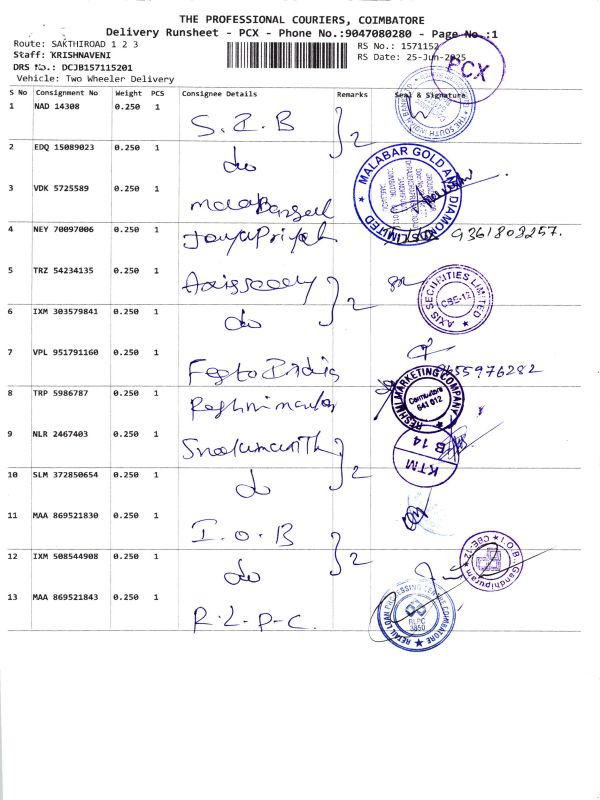 THE PROFESSIONAL COURIERS, COIMBATORE
Delivery Runsheet - PCX - Phone No.:9047080280 - Page No.:1
Route: SAKTHIROAD 1 2 3
RS No.: 1571152
Staff: KRISHNAVENI
RS Date: 25-Jun-2025
DRS No.: DCJB157115201
PCX
Vehicle: Two Wheeler Delivery
S No Consignment No Weight PCS Consignee Details Remarks Seal & Signature
1 NAD 14308 0.250 1 S.I.B 2
2 EDQ 15089023 0.250 1 do
3 VDK 5725589 0.250 1
MALABAR GOLD AND DIAMONDS LIMITED
4 NEY 70097006 0.250 1 Jayapriyah 9361803257.
5 TRZ 54234135 0.250 1 2
AXIS SECURITIES LIMITED
CBE-12
6 IXM 303579841 0.250 1 do
7 VPL 951791160 0.250 1 Festo India 9655976282
8 TRP 5986787 0.250 1
RESHMI MARKETING COMPANY
Coimbatore
641 012
9 NLR 2467403 0.250 1 2
KTM
B 14
10 SLM 372850654 0.250 1 do
11 MAA 869521830 0.250 1 I.O.B 2
12 IXM 508544908 0.250 1 do
I.O.B. Gandhipuram
CBE-12
13 MAA 869521843 0.250 1 R.L.P.C.
RETAIL LOAN PROCESSING CENTRE COIMBATORE
RLPC
3850